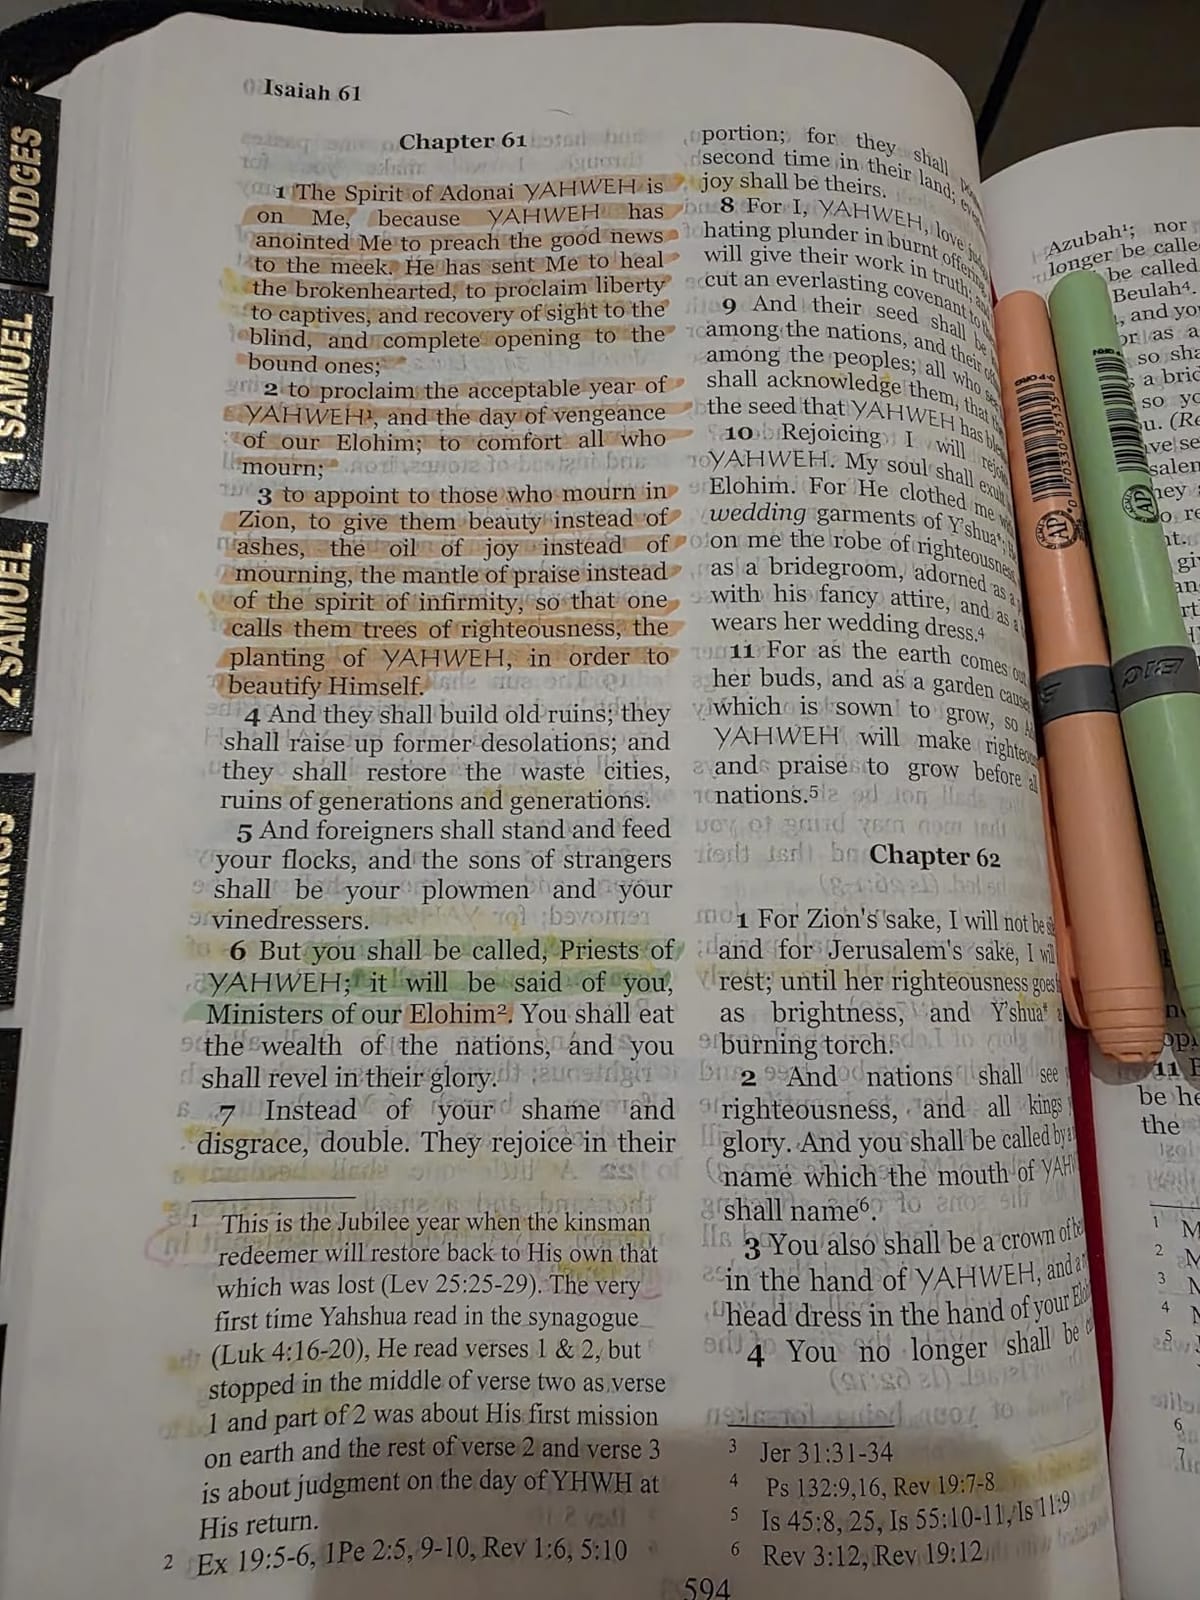 Isaiah 61
Chapter 61
1 The Spirit of Adonai YAHWEH is
on Me, because YAHWEH has
anointed Me to preach the good news
to the meek. He has sent Me to heal
the brokenhearted, to proclaim liberty
to captives, and recovery of sight to the
blind, and complete opening to the
bound ones;
2 to proclaim the acceptable year of
YAHWEH¹, and the day of vengeance
of our Elohim; to comfort all who
mourn;
3 to appoint to those who mourn in
Zion, to give them beauty instead of
ashes, the oil of joy instead of
mourning, the mantle of praise instead
of the spirit of infirmity, so that one
calls them trees of righteousness, the
planting of YAHWEH, in order to
beautify Himself.
4 And they shall build old ruins; they
shall raise up former desolations; and
they shall restore the waste cities,
ruins of generations and generations.
5 And foreigners shall stand and feed
your flocks, and the sons of strangers
shall be your plowmen and your
vinedressers.
6 But you shall be called, Priests of
YAHWEH; it will be said of you,
Ministers of our Elohim². You shall eat
the wealth of the nations, and you
shall revel in their glory.
7 Instead of your shame and
disgrace, double. They rejoice in their
1 This is the Jubilee year when the kinsman
redeemer will restore back to His own that
which was lost (Lev 25:25-29). The very
first time Yahshua read in the synagogue
(Luk 4:16-20), He read verses 1 & 2, but
stopped in the middle of verse two as verse
1 and part of 2 was about His first mission
on earth and the rest of verse 2 and verse 3
is about judgment on the day of YHWH at
His return.
2 Ex 19:5-6, 1Pe 2:5, 9-10, Rev 1:6, 5:10
portion; for they shall
second time in their land;
joy shall be theirs.
8 For I, YAHWEH, love
hating plunder in burnt offering
will give their work in truth;
cut an everlasting covenant to
9 And their seed shall be
among the nations, and their
among the peoples; all who
shall acknowledge them, that
the seed that YAHWEH has
10 Rejoicing I will
YAHWEH. My soul shall
Elohim. For He clothed me
wedding garments of Y'shua*;
on me the robe of righteousness,
as a bridegroom, adorned as a
with his fancy attire, and as a
wears her wedding dress.⁴
11 For as the earth comes
her buds, and as a garden causes
which is sown to grow, so
YAHWEH will make
and praise to grow before
nations.⁵
Chapter 62
1 For Zion's sake, I will not be
and for Jerusalem's sake, I
rest; until her righteousness goes
as brightness, and Y'shua*
burning torch.
2 And nations shall see
righteousness, and all kings
glory. And you shall be called by
name which the mouth of
shall name⁶.
3 You also shall be a crown of
in the hand of YAHWEH, and a
head dress in the hand of your
4 You no longer shall be
3 Jer 31:31-34
4 Ps 132:9,16, Rev 19:7-8
5 Is 45:8, 25, Is 55:10-11, Is 11:9
6 Rev 3:12, Rev 19:12
594
JUDGES
1 SAMUEL
2 SAMUEL
Azubah¹; nor
longer be
be called
Beulah⁴.
and
BIC
AP
AP